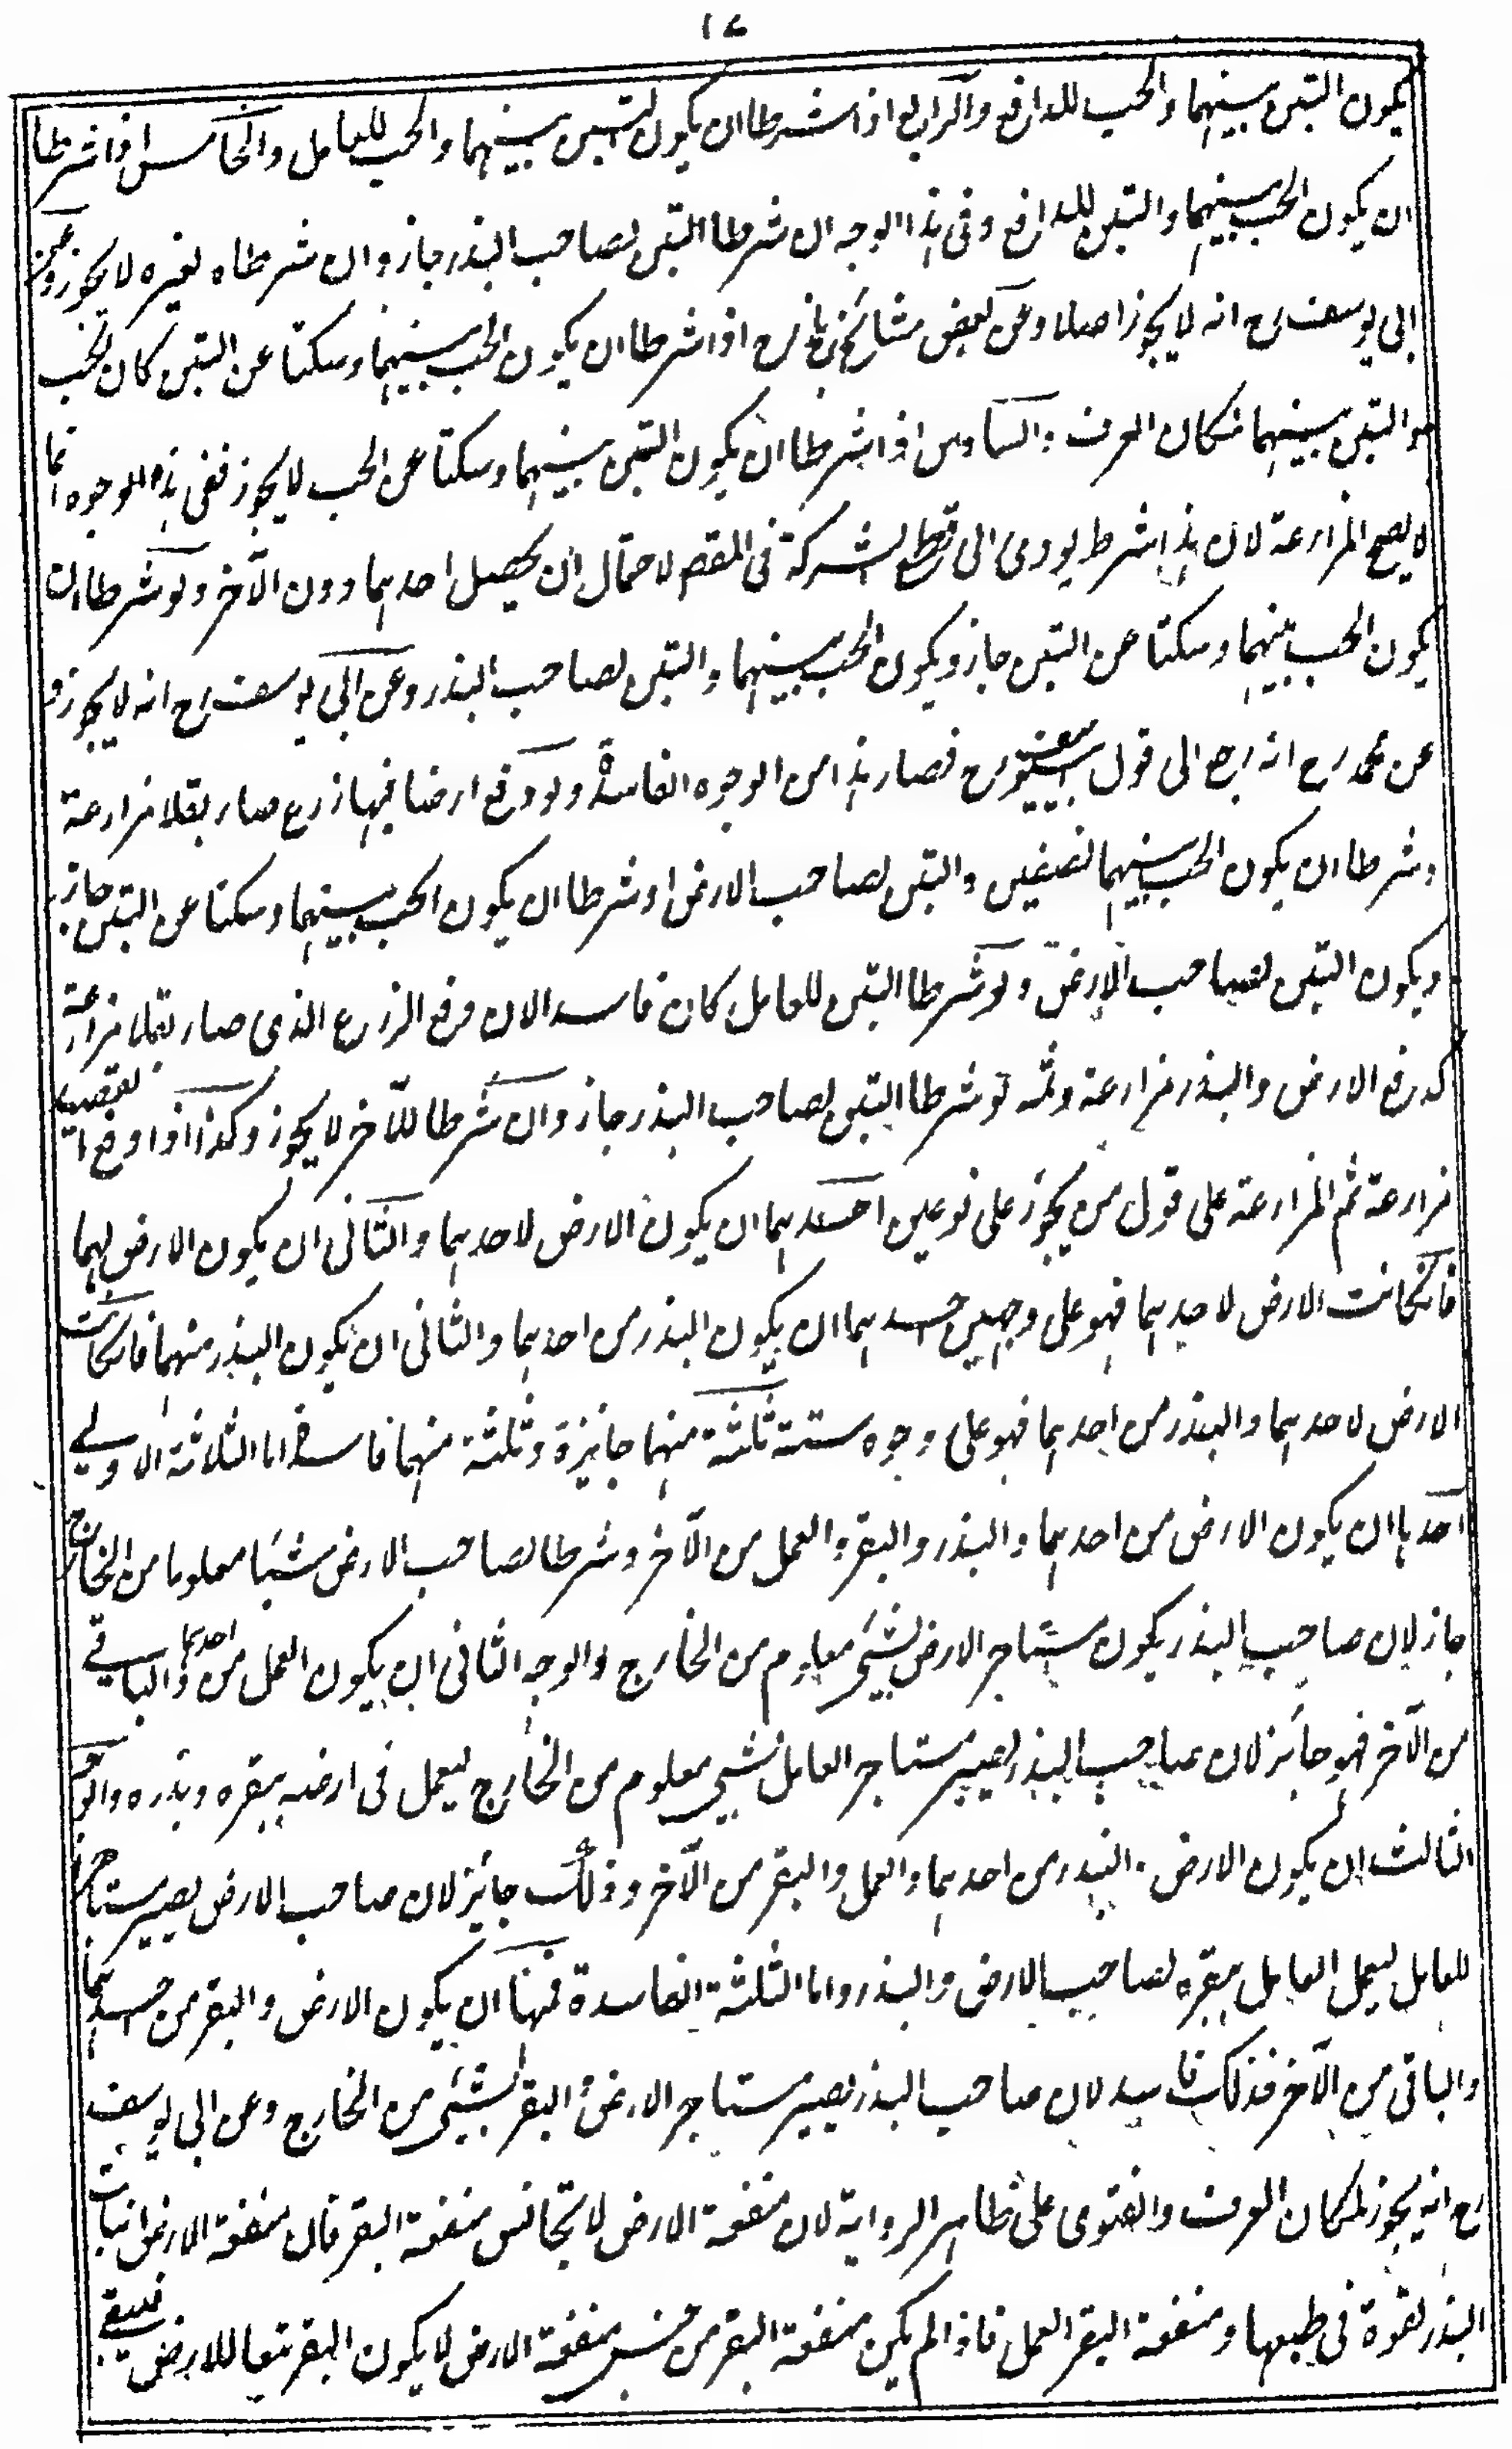 ١٧
يكون التبن بينهما والحب للدافع والرابع اذا شرطا ان يكون التبن بينهما والحب للعامل والخامس اذا شرطا
ان يكون الحب بينهما والتبن للدافع وفى هذا الوجه ان شرطا التبن لصاحب البذر جاز وان شرطاه لغيره لا يجوز وعن
ابى يوسف رح انه لا يجوز اصلا وعن بعض مشائخ بلخ رح اذا شرطا ان يكون الحب بينهما وسكتا عن التبن كان الحب
والتبن بينهما لمكان العرف والسادس اذا شرطا ان يكون التبن بينهما وسكتا عن الحب لا يجوز ففى هذه الوجوه انما
لا يصح المزارعة لان هذا شرط يودى الى قطع الشركة فى المقصد لاحتمال ان يحصل احدهما دون الآخر ولو شرطا ان
يكون الحب بينهما وسكتا عن التبن جاز ويكون الحب بينهما والتبن لصاحب البذر وعن ابى يوسف رح انه لا يجوز و
عن محمد رح انه رجع الى قول ابى يوسف رح فصار هذا من الوجوه الفاسدة ولو دفع ارضا فيها زرع صار بقلا مزارعة
وشرطا ان يكون الحب بينهما نصفين والتبن لصاحب الارض او شرطا ان يكون الحب بينهما وسكتا عن التبن جاز
ويكون التبن لصاحب الارض ولو شرطا التبن للعامل كان فاسدا لان دفع الزرع الذى صار بقلا مزارعة
كدفع الارض والبذر مزارعة وثمه لو شرطا التبن لصاحب البذر جاز وان شرطا للآخر لا يجوز وكذا اذا دفع القصيل
مزارعة ثم المزارعة على قول من يجوز على نوعين احدهما ان يكون الارض لاحدهما والثانى ان يكون الارض لهما
فان كانت الارض لاحدهما فهو على وجهين احدهما ان يكون البذر من احدهما والثانى ان يكون البذر منهما فان كانت
الارض لاحدهما والبذر من احدهما فهو على وجوه ستة ثلثة منها جايزة وثلثة منها فاسدة اما الثلاثة الاولى
احدها ان يكون الارض من احدهما والبذر والبقر والعمل من الآخر وشرطا لصاحب الارض شيئا معلوما من الخارج
جاز لان صاحب البذر يكون مستاجر الارض بشئ معلوم من الخارج والوجه الثانى ان يكون العمل من احدهما والباقى
من الآخر فهو جائز لان صاحب البذر يصير مستاجر العامل بشئ معلوم من الخارج ليعمل فى ارضه ببقره وبذره والوجه
الثالث ان يكون الارض والبذر من احدهما والعمل والبقر من الآخر وذلك جائز لان صاحب الارض يصير مستاجرا
للعامل ليعمل العامل ببقره لصاحب الارض والبذر واما الثلثة الفاسدة فمنها ان يكون الارض والبقر من احدهما
والباقى من الآخر فذلك فاسد لان صاحب البذر يصير مستاجر الارض والبقر بشئ من الخارج وعن ابى يوسف
رح انه يجوز لمكان العرف والفتوى على ظاهر الرواية لان منفعة الارض لا تجانس منفعة البقر فان منفعة الارض انبات
البذر لقوة فى طبعها ومنفعة البقر العمل فاذا لم يكن منفعة البقر من جنس منفعة الارض لا يكون البقر تبعا للارض فيبقى